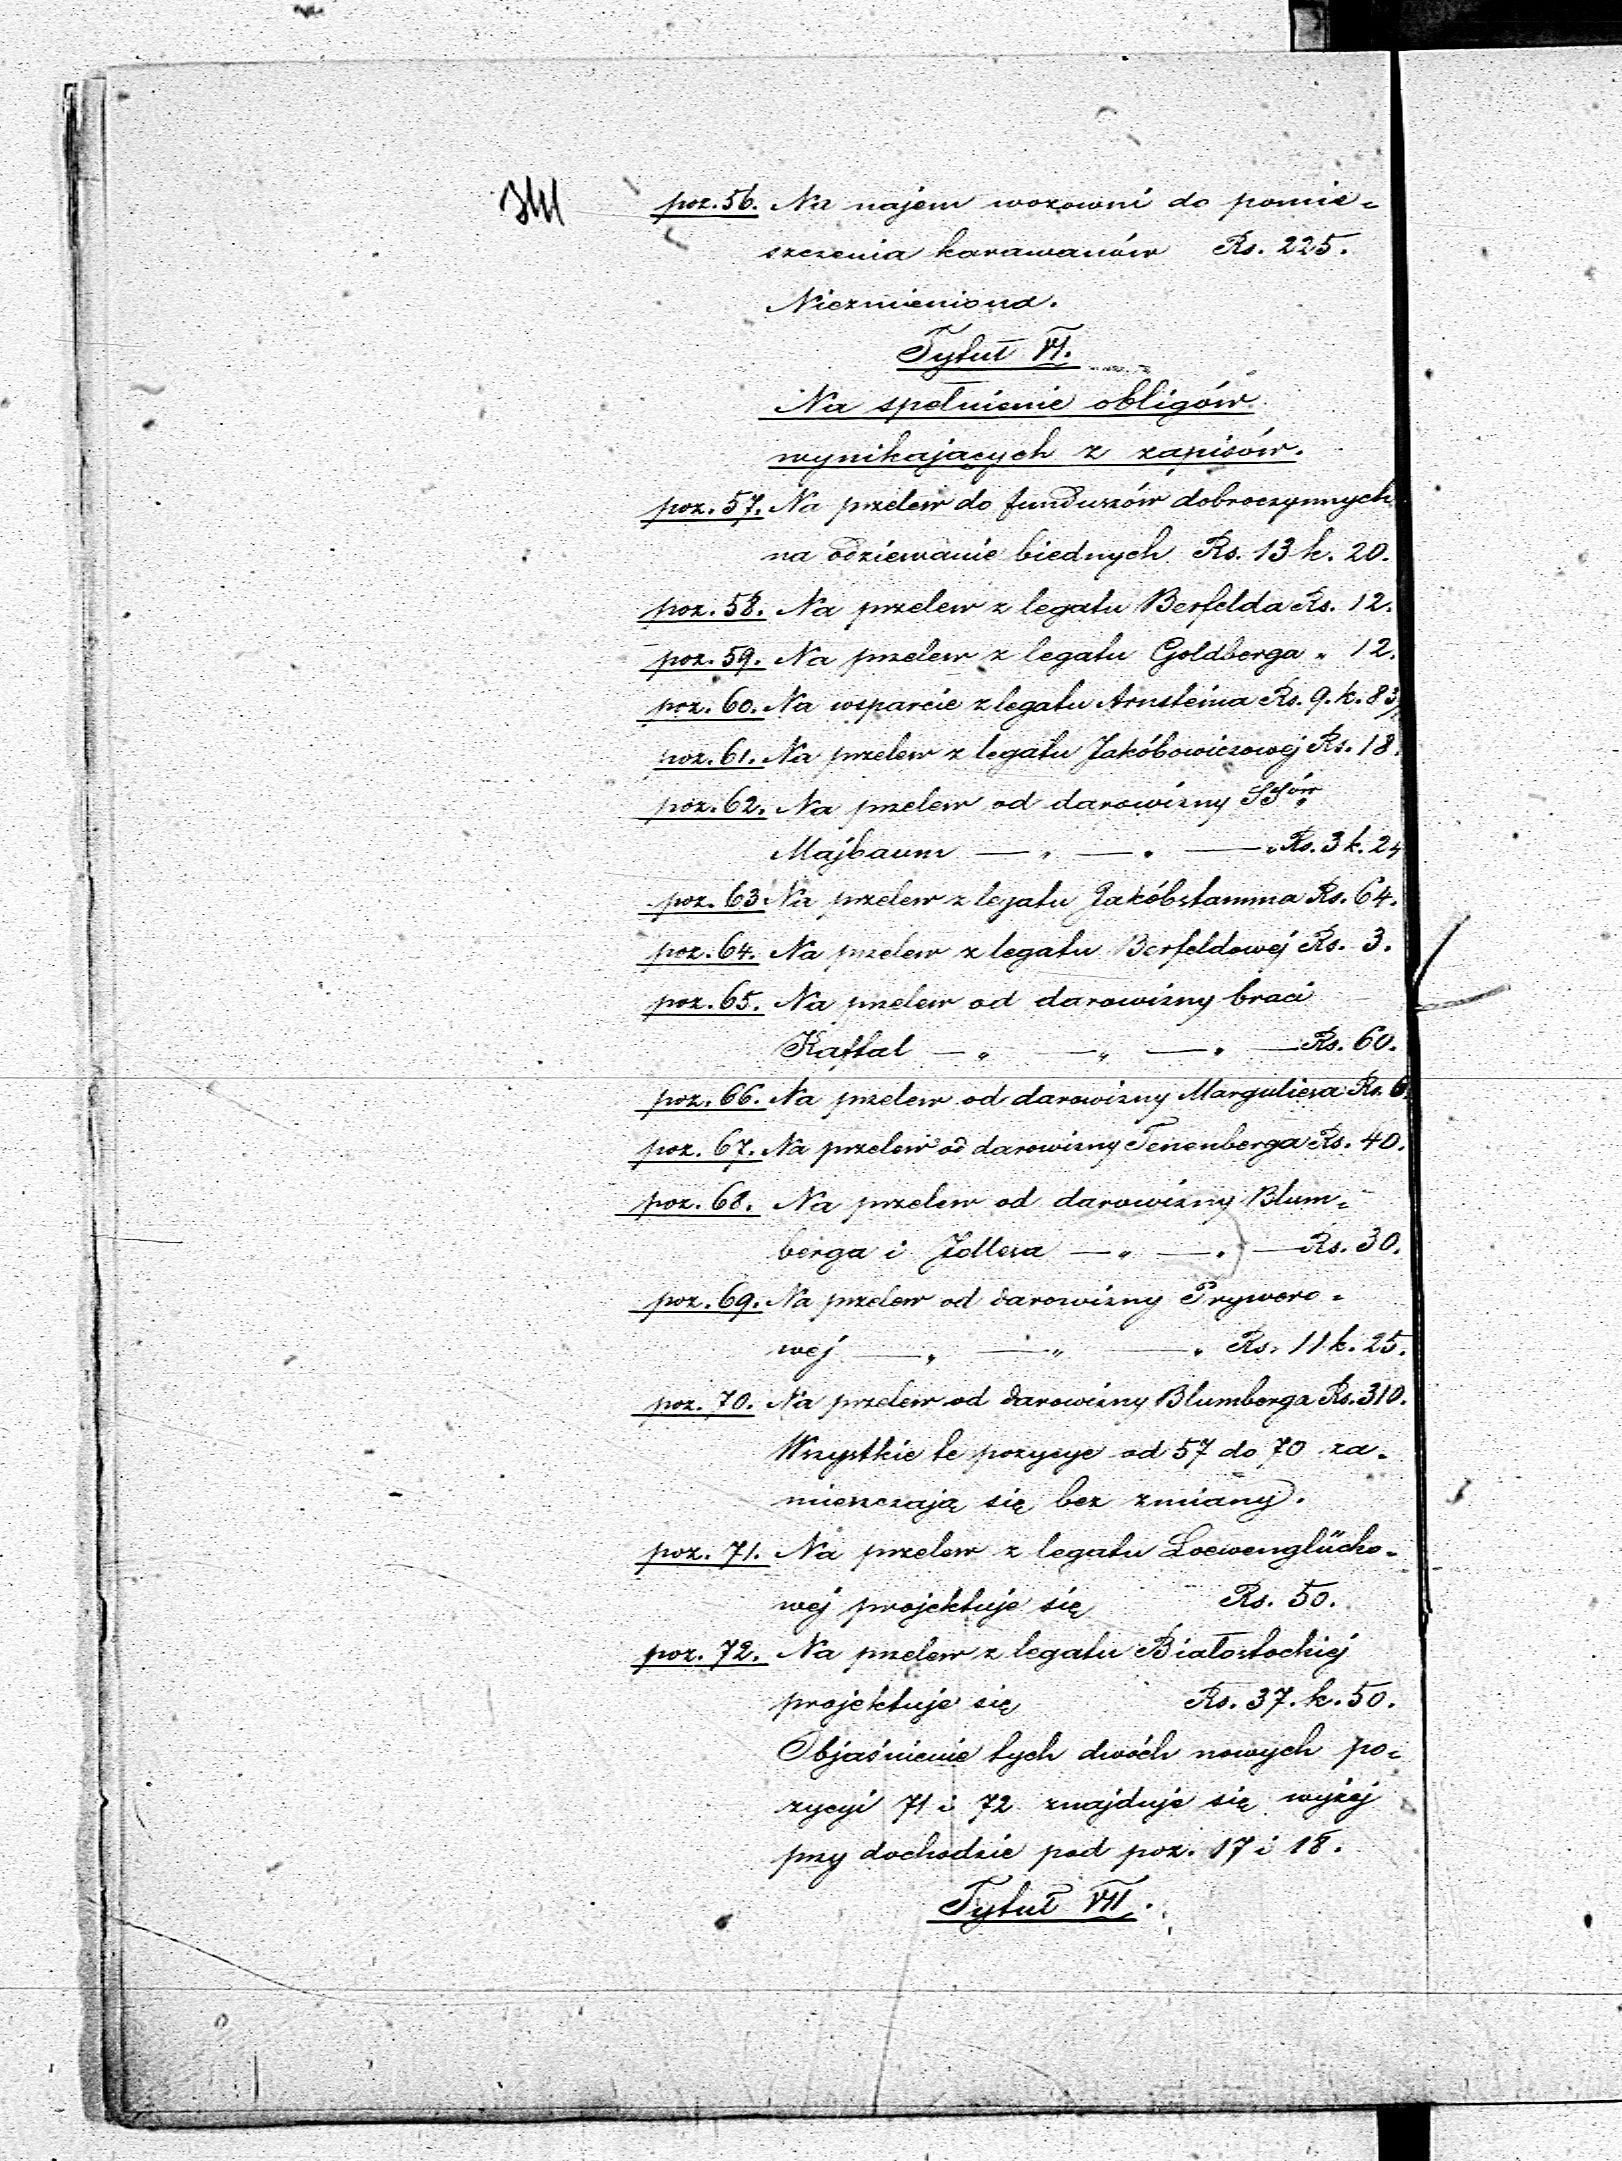 poz. 56. Na najem wozowni do pomie-
szczenia karawanów Rs. 225.
Niezmieniona.
Tytuł VI.
Na spełnienie obligów
wynikających z zapisów.
poz. 57. Na przelew do funduszów dobroczynnych
na odziewanie biednych Rs. 13 k. 20.
poz. 58. Na przelew z legatu Berfelda Rs. 12.
poz. 59. Na przelew z legatu Goldberga „ 12.
poz. 60. Na wsparcie z legatu Arnsteina Rs. 9. k. 83
poz. 61. Na przelew z legatu Jakóbowiczowej Rs. 18.
poz. 62. Na przelew od darowizny SSów
Majbaum — „ — „ — „ Rs. 3 k. 24
poz. 63 Na przelew z legatu Jakóbstamma Rs. 64.
poz. 64. Na przelew z legatu Berfeldowéj Rs. 3.
poz. 65. Na przelew od darowizny braci
Kaftal — „ — „ — „ — Rs. 60.
poz. 66. Na przelew od darowizny Marguliesa Rs. 6.
poz. 67. Na przelew od darowizny Tenenberga Rs. 40.
poz. 68. Na przelew od darowizny Blum-
berga i Jollesa — „ — „ — Rs. 30.
poz. 69. Na przelew od darowizny Prywero-
wéj — „ — „ — „ Rs. 11 k. 25.
poz. 70. Na przelew od darowizny Blumberga Rs. 310.
Wszystkie te pozycye od 57 do 70 za-
mieszczają się bez zmiany.
poz. 71. Na przelew z legatu Loewenglücko-
wéj projektuje się Rs. 50.
poz. 72. Na przelew z legatu Białostockiéj
projektuje się Rs. 37. k. 50.
Objaśnienie tych dwóch nowych po-
zycyi 71 i 72 znajduje się wyżéj
przy dochodzie pod poz. 17 i 18.
Tytuł VII.